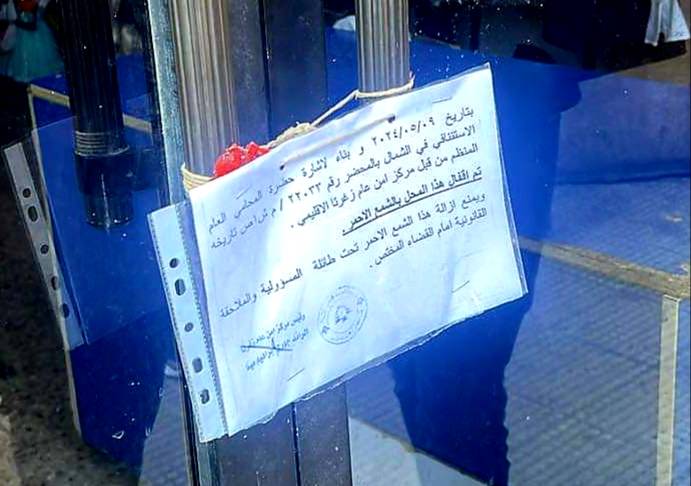 بتاريخ ٢٠٢٤/٠٥/٠٩ و بناء لاشارة حضرة المحامي العام
الاستئنافي في الشمال بالمحضر رقم ٢٢٠٣٣ / م ش ا ص تاريخه
المنظم من قبل مركز امن عام زغرتا الاقليمي .
تم اقفال هذا المحل بالشمع الاحمر .
ويمنع ازالة هذا الشمع الاحمر تحت طائلة المسؤولية والملاحقة
القانونية امام القضاء المختص .
رئيس مركز امن عام زغرتا
الرائد